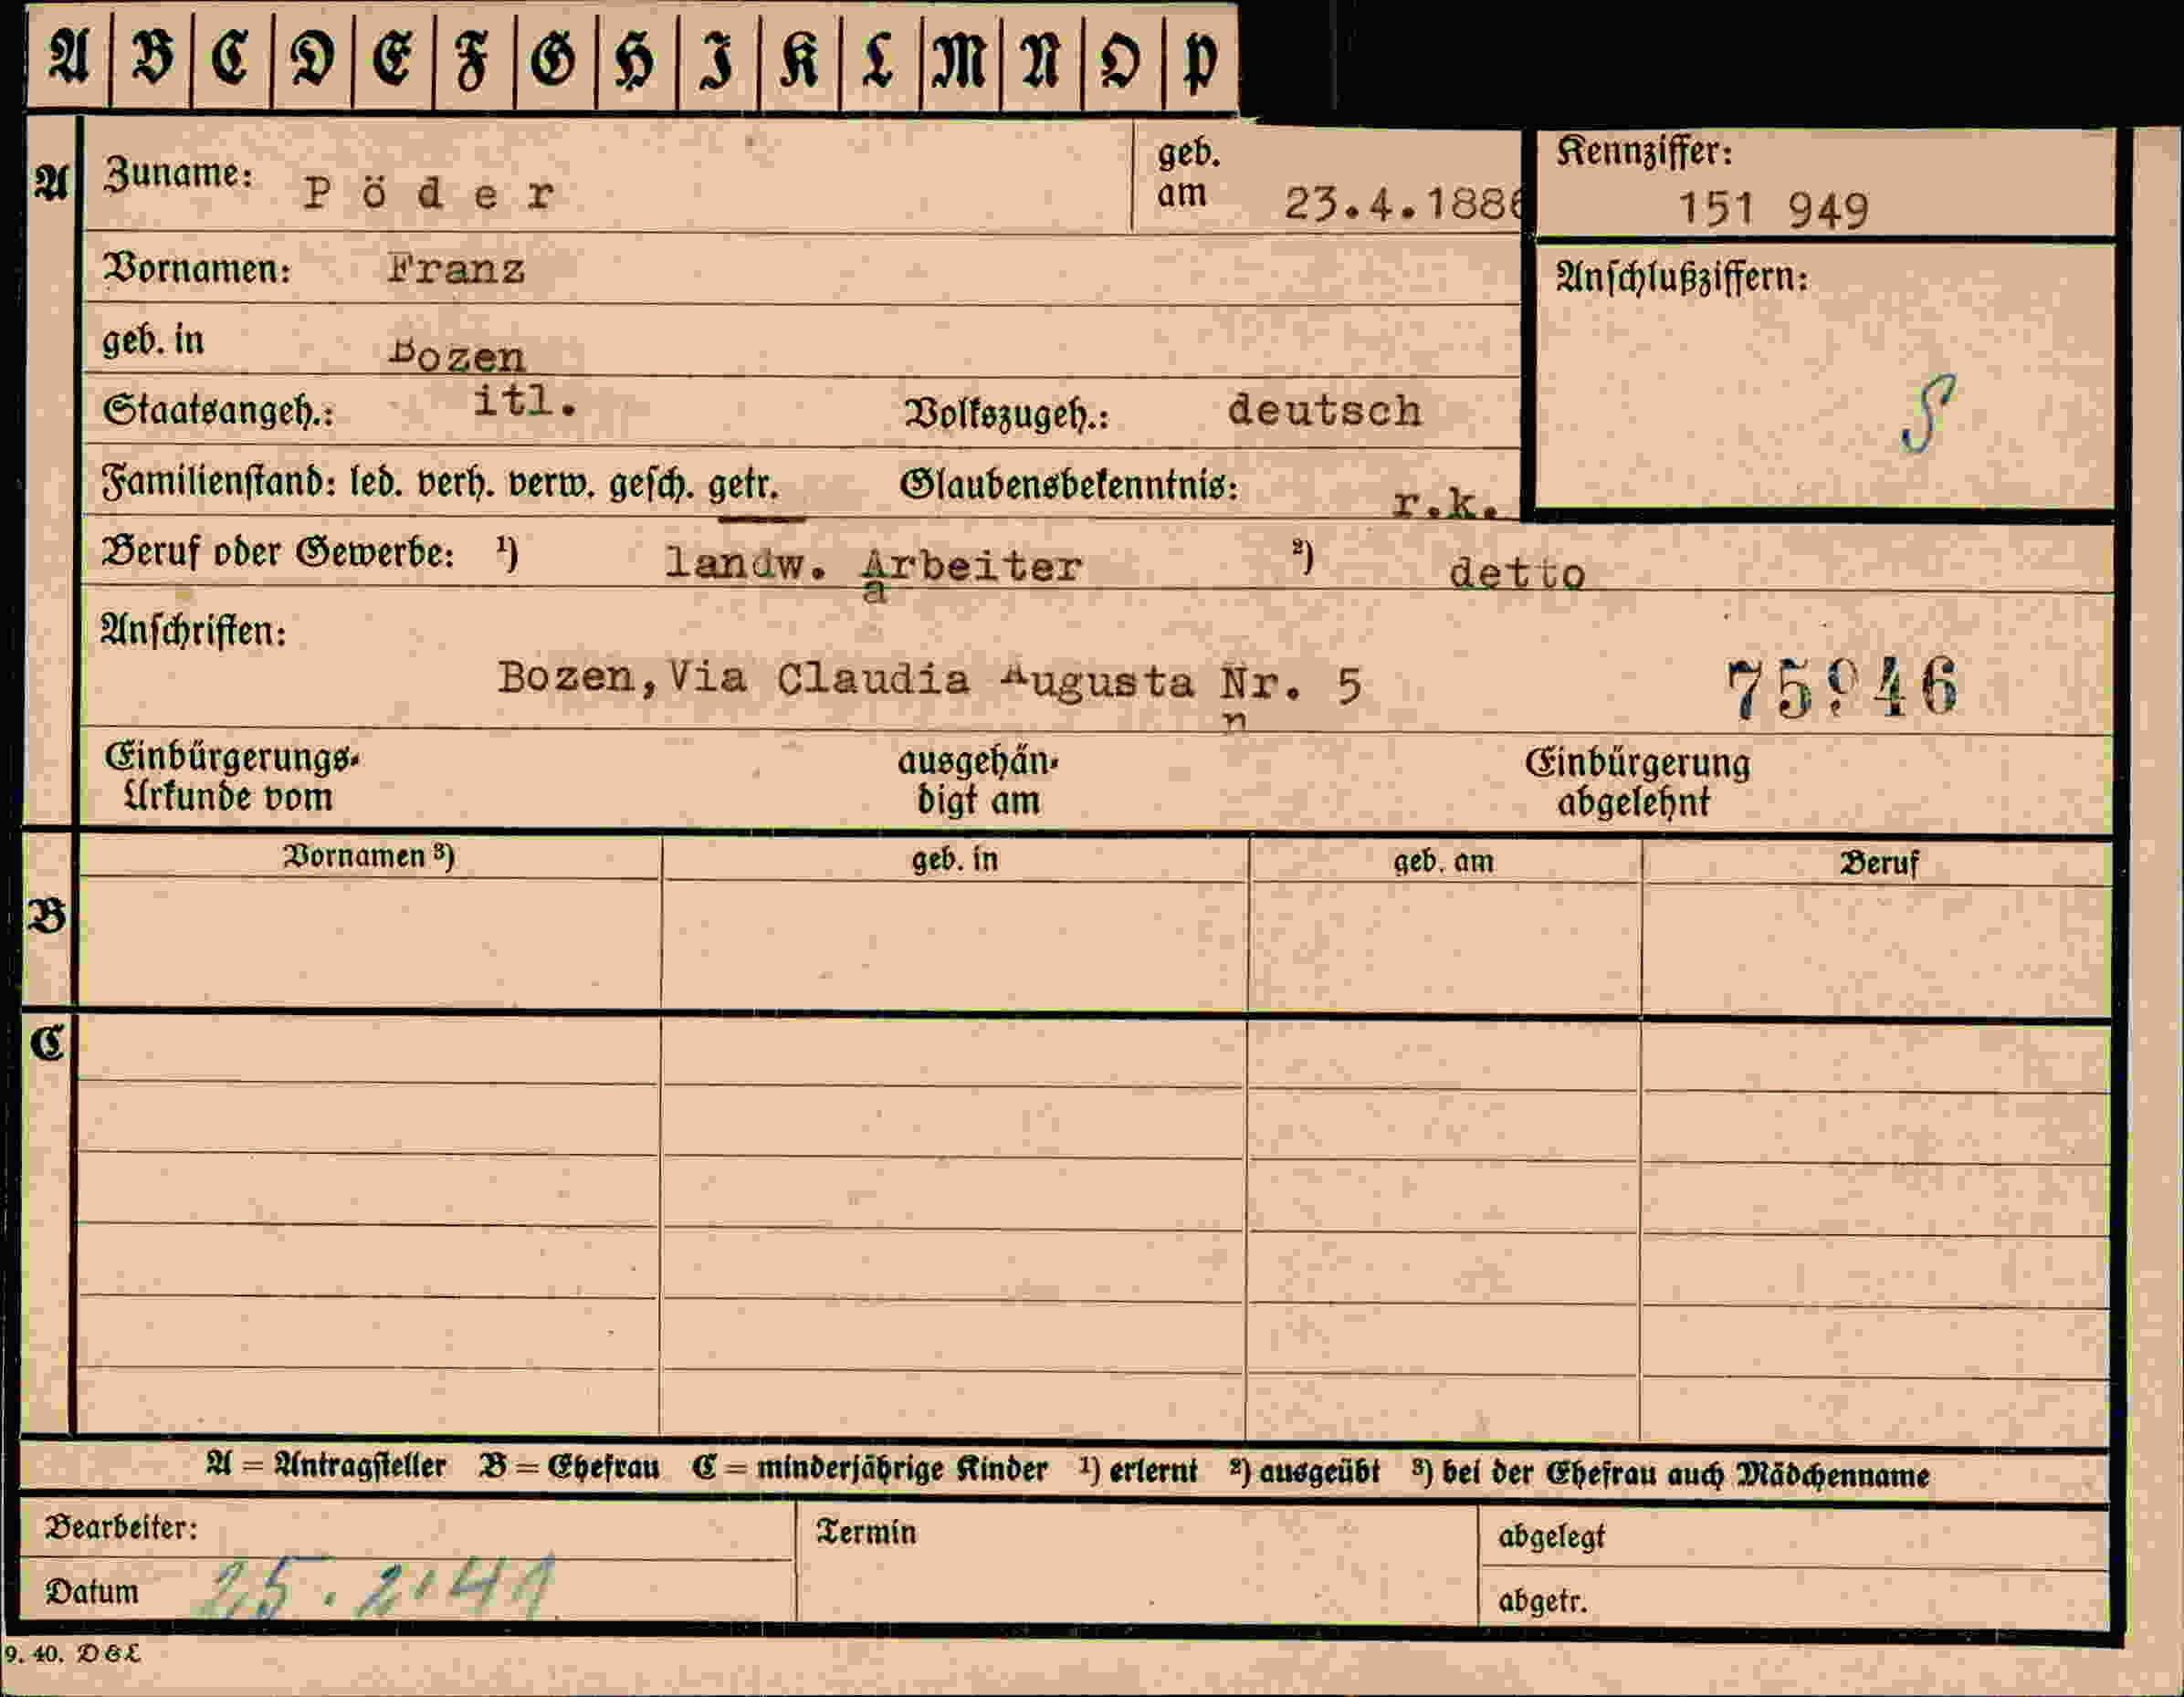 A B C D E F G H I K L M N O P
A Zuname: Pöder geb. am 23.4.1886 Kennziffer: 151 949
Vornamen: Franz Anschlußziffern:
geb. in Bozen
Staatsangeh.: itl. Volkszugeh.: deutsch S
Familienstand: led. verh. verw. gesch. getr. Glaubensbekenntnis: r.k.
Beruf oder Gewerbe: ¹) landw. Arbeiter ²) detto
a
Anschriften:
Bozen, Via Claudia Augusta Nr. 5
n
Einbürgerungs- ausgehän- Einbürgerung
Urkunde vom digt am abgelehnt
Vornamen ³) geb. in geb. am Beruf
B
C
A = Antragsteller B = Ehefrau C = minderjährige Kinder ¹) erlernt ²) ausgeübt ³) bei der Ehefrau auch Mädchenname
Bearbeiter: Termin abgelegt
Datum 25.2.41 abgetr.
9. 40. D&L